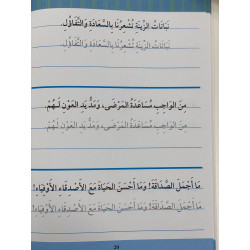 نَبَاتَاتُ الزِّينَةِ تُشْعِرُنَا بِالسَّعَادَةِ وَالتَّفَاؤُلِ.
نَبَاتَاتُ الزِّينَةِ تُشْعِرُنَا بِالسَّعَادَةِ وَالتَّفَاؤُلِ.
مِنَ الْوَاجِبِ مُسَاعَدَةُ الْمَرْضَى، وَمَدُّ يَدِ الْعَوْنِ لَهُمْ.
مِنَ الْوَاجِبِ مُسَاعَدَةُ الْمَرْضَى، وَمَدُّ يَدِ الْعَوْنِ لَهُمْ.
مَا أَجْمَلَ الصَّدَاقَةَ! وَمَا أَحْسَنَ الْحَيَاةَ مَعَ الْأَصْدِقَاءِ الْأَوْفِيَاءِ!
مَا أَجْمَلَ الصَّدَاقَةَ! وَمَا أَحْسَنَ الْحَيَاةَ مَعَ الْأَصْدِقَاءِ الْأَوْفِيَاءِ!